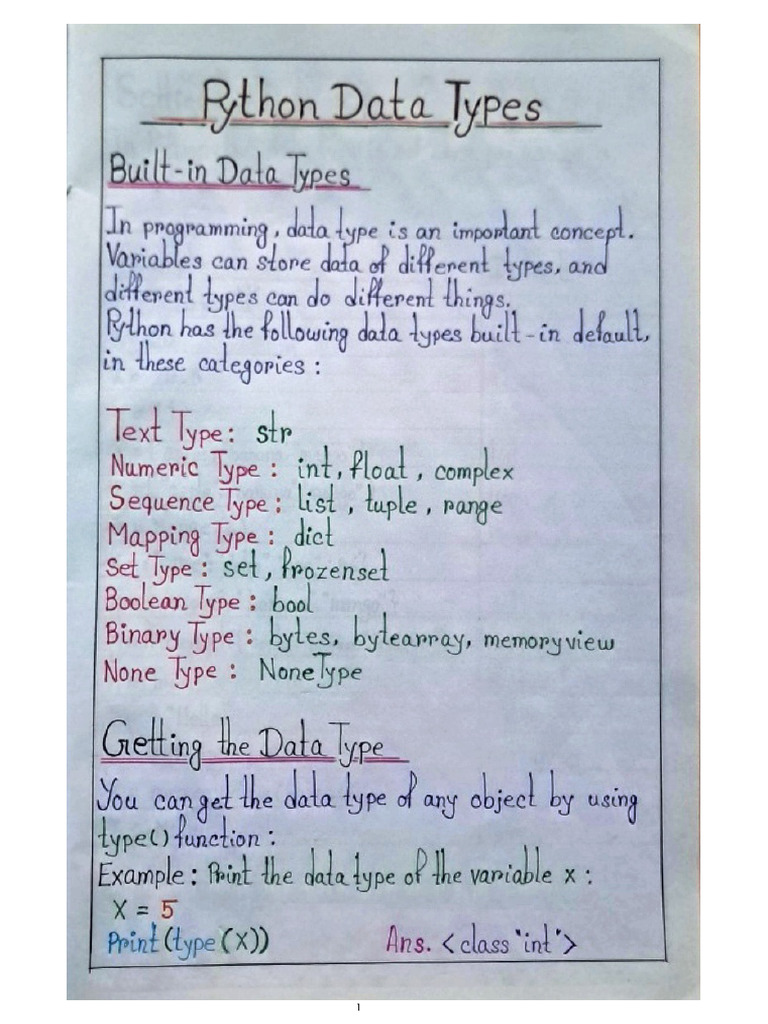 Python Data Types
Built-in Data Types
In programming, data type is an important concept.
Variables can store data of different types, and
different types can do different things.
Python has the following data types built-in default,
in these categories :
Text Type : str
Numeric Type : int, float, complex
Sequence Type : list, tuple, range
Mapping Type : dict
Set Type : set, frozenset
Boolean Type : bool
Binary Type : bytes, bytearray, memoryview
None Type : NoneType
Getting the Data Type
You can get the data type of any object by using
type() function :
Example : Print the data type of the variable x :
X = 5
Print (type (X)) Ans. <class "int">
1